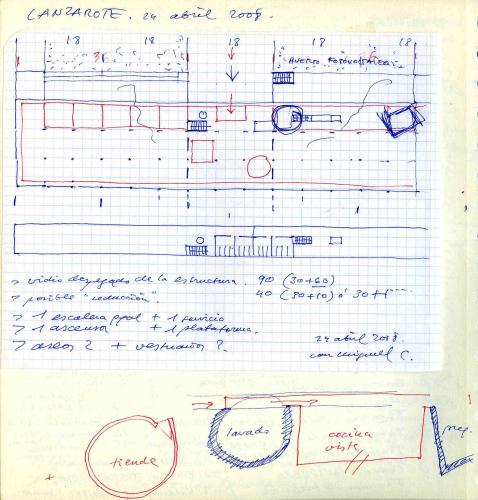 LANZAROTE. 24 abril 2008.
18 18 18 18 18
36
HUERTO FOTOVOLTAICO
> vidrio despegado de la estructura. 90 (30+60)
> posible "reducción". 40 (30+10) ó 30+1
> 1 escalera ppal + 1 servicio
> 1 ascensor + 1 plataforma.
> aseos ? + vestuarios ?.
24 abril 2008.
con miguel C.
tienda
lavado
cocina
viste